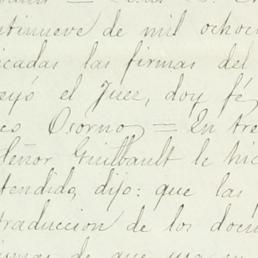 tinueve de mil ochoci
icadas las firmas del
eyó el Juez, doy fé
es Osorno = In tre
Señor Guilbault le hic
tendido, dijo: que las
traduccion de los docu